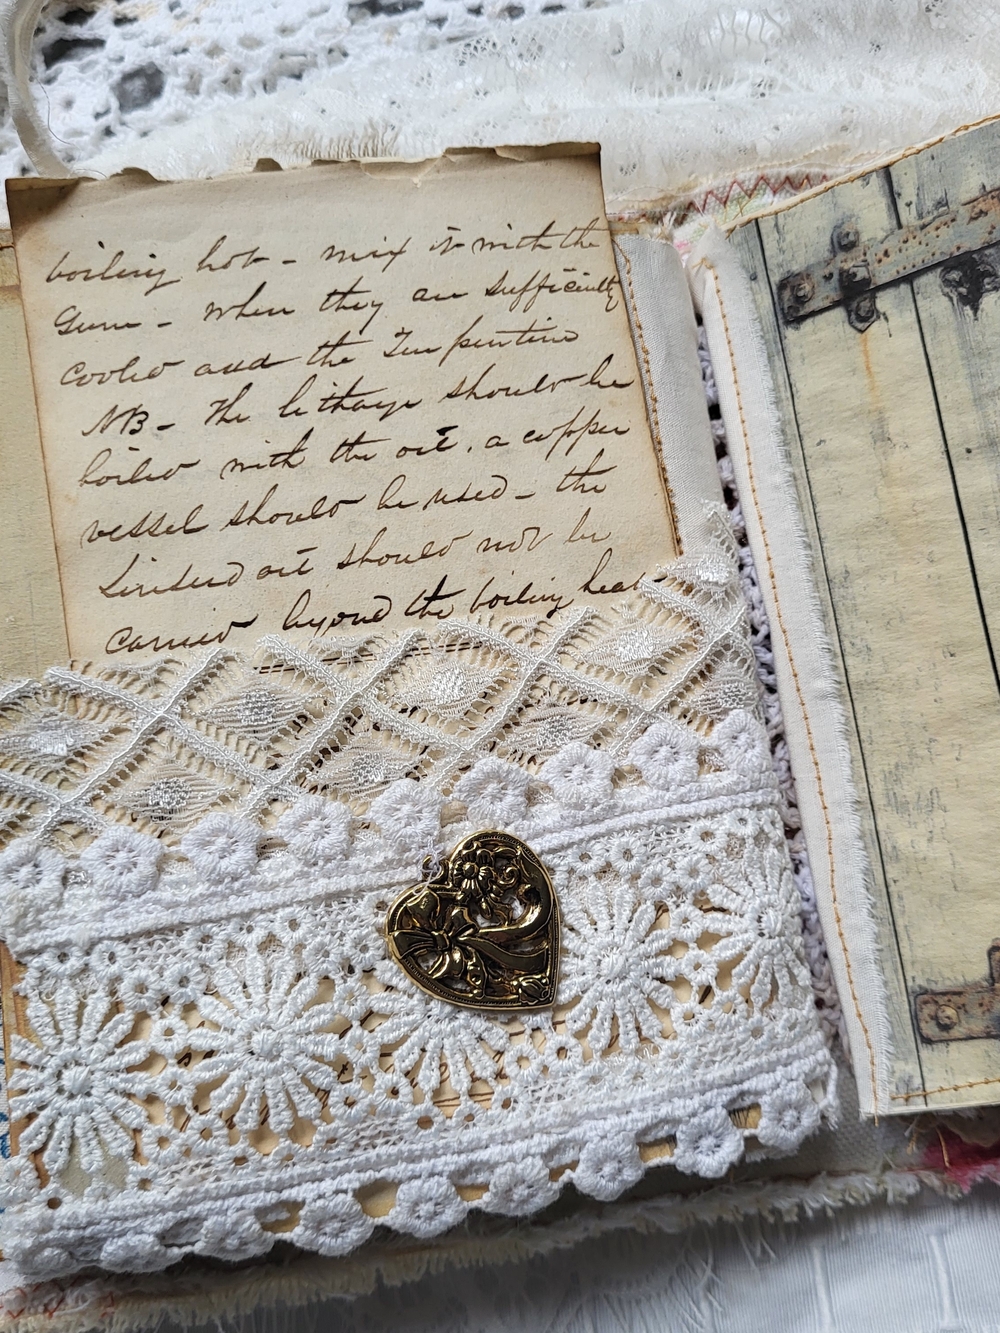 boiling hot - mix it with the
Gum - when they are sufficiently
cooled add the Turpentine
NB - The litharge should be
boiled with the oil, a copper
vessel should be used - the
Linseed oil should not be
carried beyond the boiling heat